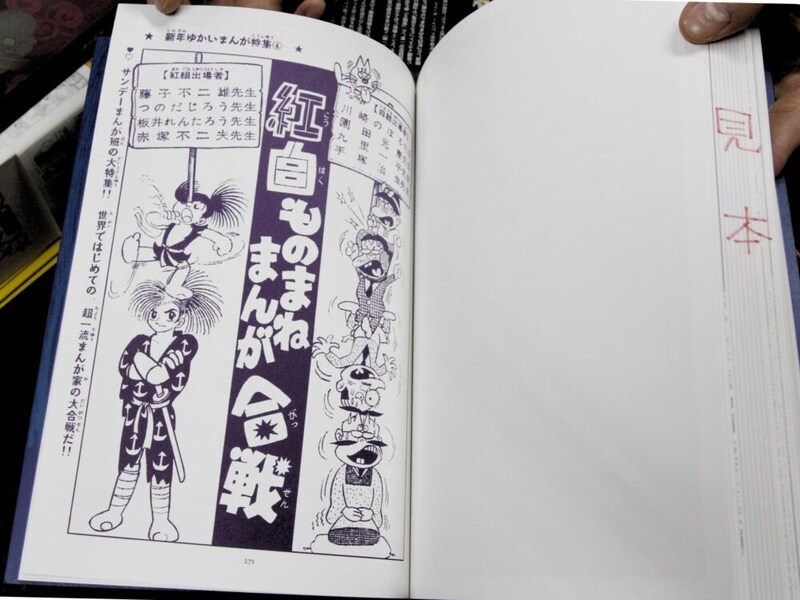 ★ 新年ゆかいまんが特集④ ★
♥♡サンデーまんが班の大特集!! 世界ではじめての、超一流まんが家の大合戦だ!!
【紅組出場者】
藤子不二雄先生
つのだじろう先生
板井れんたろう先生
赤塚不二夫先生
紅白ものまね
まんが合戦
こう
はく
がっ
せん
【白組出場者】
川崎のぼる
園田光慶
九里一平
手塚治虫
271
見本